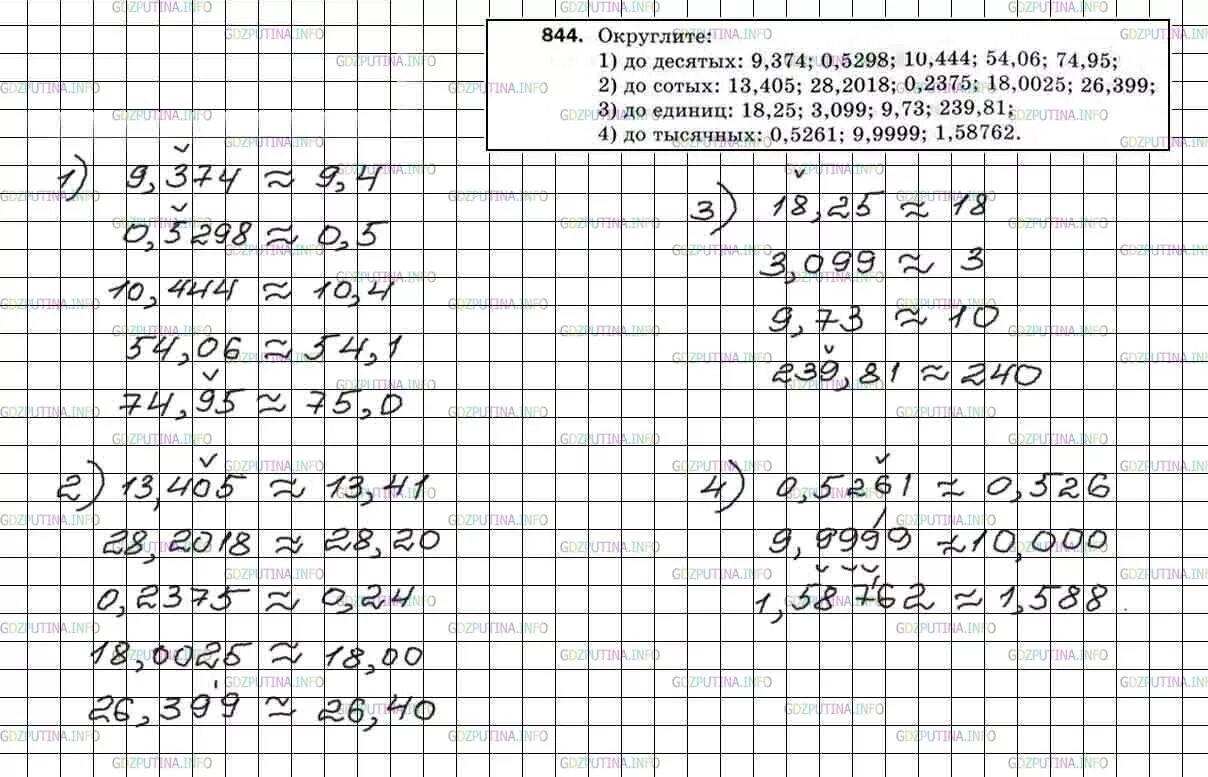 844. Округлите:
1) до десятых: 9,374; 0,5298; 10,444; 54,06; 74,95;
2) до сотых: 13,405; 28,2018; 0,2375; 18,0025; 26,399;
3) до единиц: 18,25; 3,099; 9,73; 239,81;
4) до тысячных: 0,5261; 9,9999; 1,58762.
1) 9,374 ≈ 9,4
0,5298 ≈ 0,5
10,444 ≈ 10,4
54,06 ≈ 54,1
74,95 ≈ 75,0
2) 13,405 ≈ 13,41
28,2018 ≈ 28,20
0,2375 ≈ 0,24
18,0025 ≈ 18,00
26,399 ≈ 26,40
3) 18,25 ≈ 18
3,099 ≈ 3
9,73 ≈ 10
239,81 ≈ 240
4) 0,5261 ≈ 0,526
9,9999 ≈ 10,000
1,58762 ≈ 1,588
GDZPUTINA.INFO